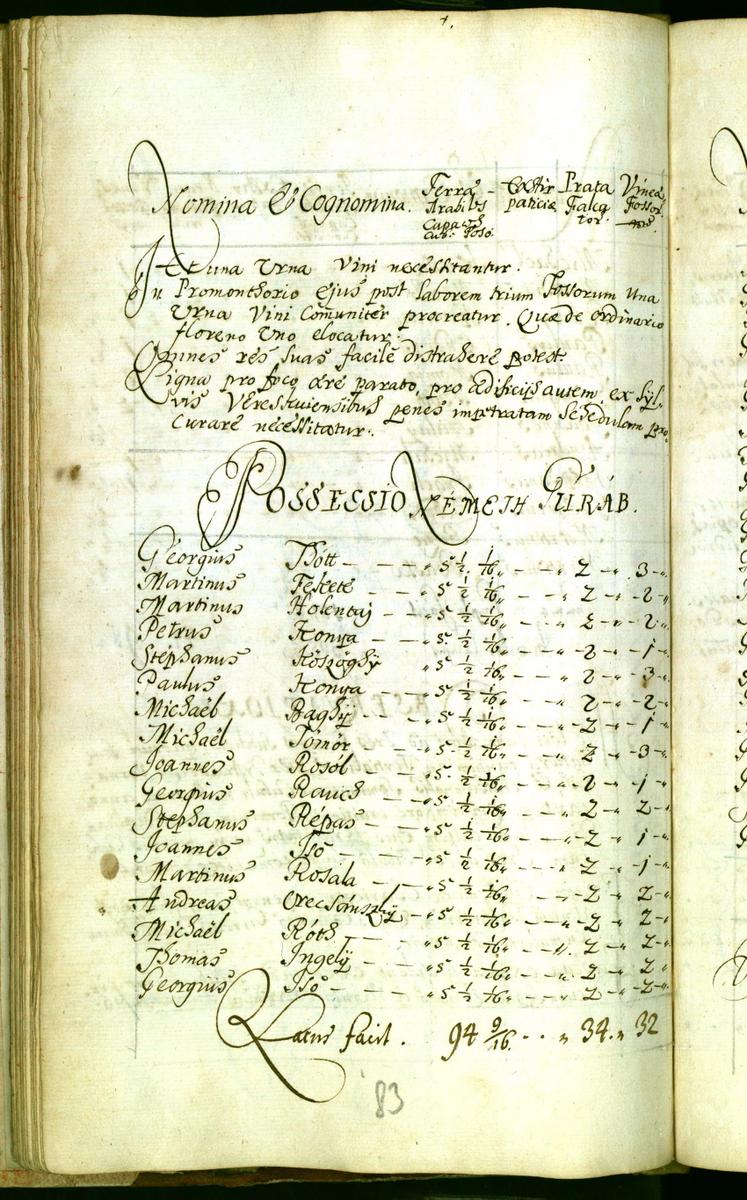 Nomina & Cognomina. Terræ Arabiles Capacis Cub: Poso. Extirpaticiæ Prata Falcator. Vineæ Fossor.
Et una Urna Vini necessitantur.
In Promonthorio ejus post laborem trium Fossorum Una
Urna Vini Comuniter procreatur. Quæ de ordinario
floreno Uno elocatur.
Omnes res suas facile distrahere potest
Ligna pro foco ære parato, pro ædificijs autem ex Syl-
vis Veresküiensibus penes impetratam Schedulam pro-
curare necessitatur.
POSSESSIO NÉMETH GURÁB.
Georgius Tott - - - " 5 1/2 1/16 " - - " 2 - " 3 - "
Martinus Fekete - - " 5 1/2 1/16 " - - " 2 - " 2 - "
Martinus Holentaj - - " 5 1/2 1/16 " - - " 2 - " 2 - "
Petrus Konya - - " 5 1/2 1/16 " - - " 2 - " 1 - "
Stephanus Köszöghÿ " 5 1/2 1/16 " - - " 2 - " 3 - "
Paulus Konya - - " 5 1/2 1/16 " - - " 2 - " 2 - "
Michaël Baghÿ - - " 5 1/2 1/16 " - - " 2 - " 1 - "
Michaël Tömör - - " 5 1/2 1/16 " - - " 2 - " 3 - "
Joannes Rosöl - - " 5 1/2 1/16 " - - " 2 - " 1 - "
Georgius Rauch - - " 5 1/2 1/16 " - - " 2 - " 2 - "
Stephanus Répas - - " 5 1/2 1/16 " - - " 2 - " 1 - "
Joannes Isó - - " 5 1/2 1/16 " - - " 2 - " 1 - "
Martinus Rosala - - " 5 1/2 1/16 " - - " 2 - " 2 - "
Andreas Orecsánszkÿ - " 5 1/2 1/16 " - - " 2 - " 2 - "
Michaël Róth - - " 5 1/2 1/16 " - - " 2 - " 2 - "
Thomas Ingelÿ - - " 5 1/2 1/16 " - - " 2 - " 2 - "
Georgius Isó - - " 5 1/2 1/16 " - - " 2 - " 2 - "
Latus facit. 94 9/16 . . . " 34. " 32
83